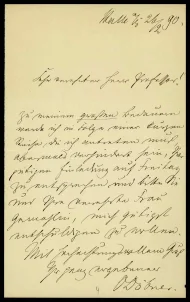 Halle a/S 26/2 90.
Sehr verehrter Herr Professor!
Zu meinem großen Bedauern
werde ich in Folge einer
Reise, die ich antreten muß,
abermals verhindert sein, Ihrer
gütigen Einladung auf Freitag
zu entsprechen und bitte Sie
und Ihre verehrte Frau
Gemahlin, mich gütigst
entschuldigen zu wollen.
Mit hochachtungsvollem Gruß
Ihr ganz ergebener
O Döbner.